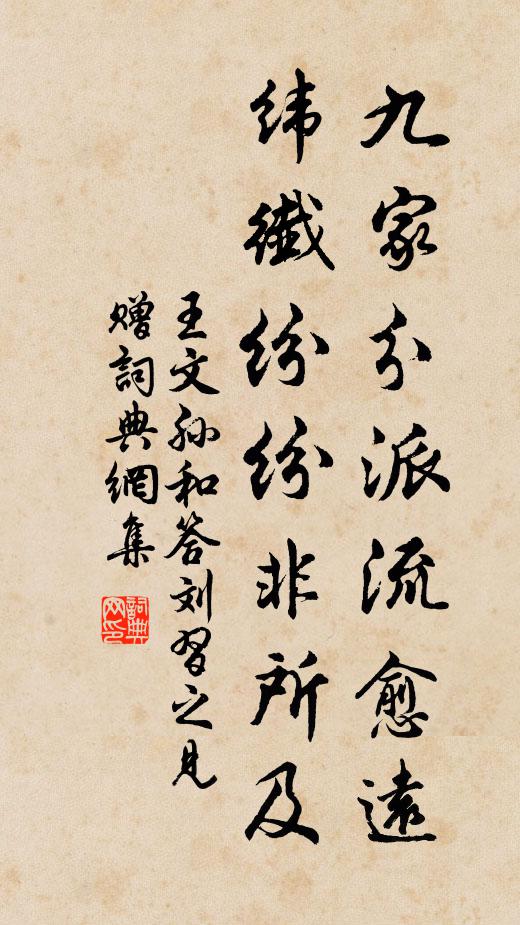 九家分派流愈遠
纬纖纷纷非所及
王文孙和答刘習之見
贈詞典網集
詞典
网印